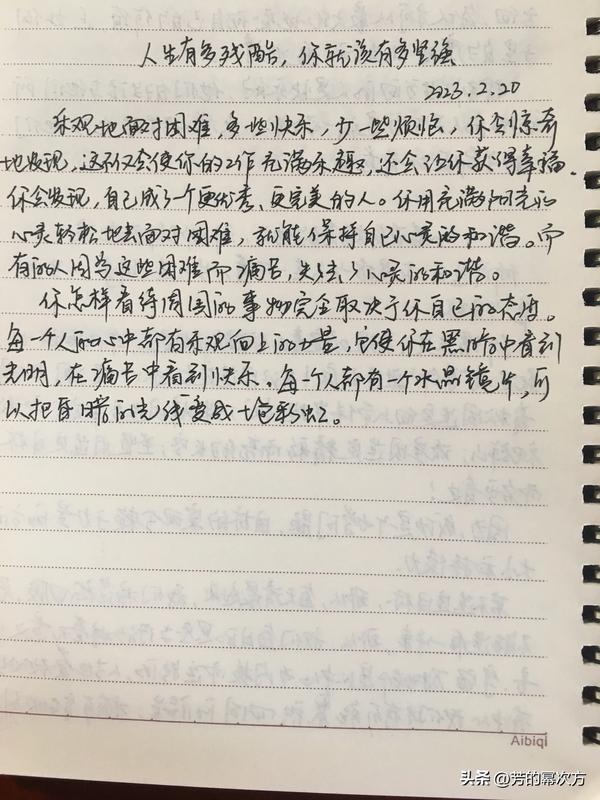 人生有多残酷，你就该有多坚强
2023.2.20
乐观地面对困难，多些快乐，少一些烦恼，你会惊奇
地发现，这不仅会使你的工作充满乐趣，还会让你获得幸福。
你会发现，自己成了一个更优秀、更完美的人。你用充满阳光的
心灵轻松地去面对困难，就能保持自己心灵的和谐。而
有的人因为这些困难而痛苦，失去了心灵的和谐。
你怎样看待周围的事物完全取决于你自己的态度。
每一个人的心中都有乐观向上的力量，它使你在黑暗中看到
光明，在痛苦中看到快乐。每一个人都有一个水晶镜片，可
以把昏暗的光线变成七色彩虹。
Aibiqi
头条 @芳的幂次方